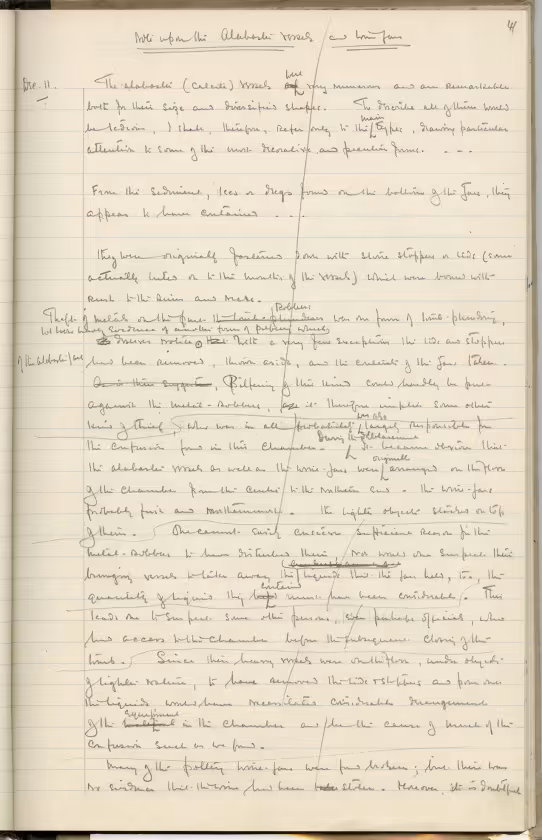 41
Note upon the Alabaster vessels and wine jars
Dec. 11. The alabaster (Calcite) vessels were very numerous and are remarkable
both for their size and diversified shapes. To describe all of them would
be tedious, I shall, therefore, refer only to the main types, drawing particular
attention to some of the most decorative and peculiar forms. - - -
From the sediment, lees or dregs found on the bottoms of the jars, they
appear to have contained . . .
They were originally fastened down with stone stoppers or lids (some
actually luted on to the mouths of the vessels) which were bound with
to the rims and necks.
Theft of metals on the part of the Robbers was one form of tomb-plundering,
but here we have evidence of another form of robbery which
deserves notice. With a very few exceptions the lids and stoppers
of the alabaster jars
had been removed, thrown aside, and the contents of the jars taken.
Pilfering of this kind could hardly be put
against the metal-robbers, it therefore implies some other
kind of thief, who was in all probability was also largely responsible for
the confusion found in this chamber. During the it became obvious that
the alabaster vessels as well as the wine-jars were originally arranged on the floor
of the chamber from the centre to the northern end - the wine-jars
probably first and northernmost. The lighter objects stacked on top
of them. One cannot surely conceive sufficient reason for the
metal-robbers to have disturbed them. Nor would one suspect their
bringing vessels to take away the liquids that the jars held, too, the
quantity of liquid they contained must have been considerable. This
leads one to suspect some other persons, perhaps officials, who
had access to the chamber before the subsequent closing of the
tomb. Since these heavy vessels were on the floor, under objects
of lighter nature, to have removed the lids & stoppers and pour out
the liquids would have necessitated considerable derangement
of the equipment in the chamber and be the cause of much of the
confusion such as we found.
Many of the pottery wine-jars were found broken; but there was
no evidence that the wine had been stolen. Moreover, it is doubtful